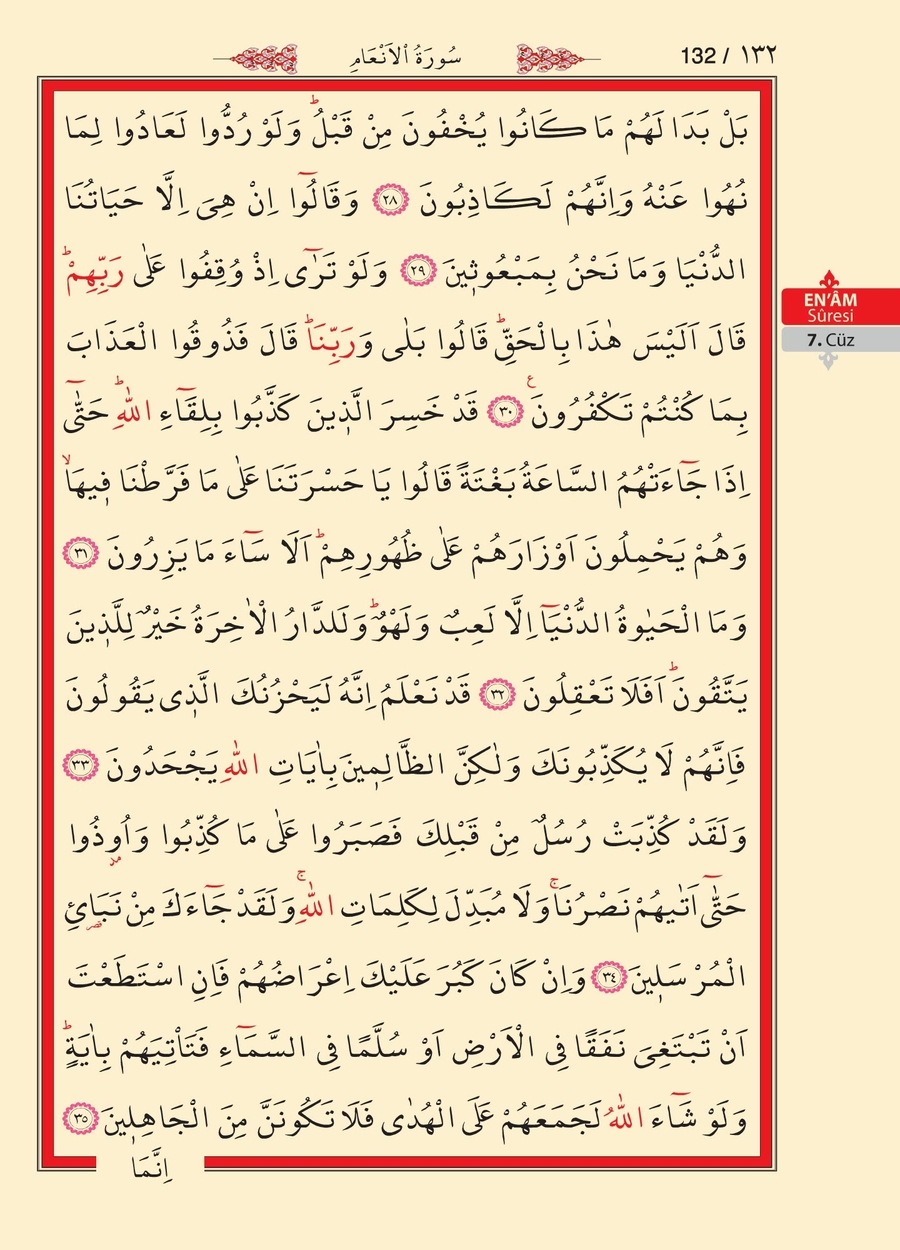 سُورَةُ الْاَنْعَامِ
132 / ١٣٢
بَلْ بَدَا لَهُمْ مَا كَانُوا يُخْفُونَ مِنْ قَبْلُۜ وَلَوْ رُدُّوا لَعَادُوا لِمَا
نُهُوا عَنْهُ وَاِنَّهُمْ لَكَاذِبُونَ ﴿٢٨﴾ وَقَالُٓوا اِنْ هِيَ اِلَّا حَيَاتُنَا
الدُّنْيَا وَمَا نَحْنُ بِمَبْعُوث۪ينَ ﴿٢٩﴾ وَلَوْ تَرٰٓى اِذْ وُقِفُوا عَلٰى رَبِّهِمْۜ
قَالَ اَلَيْسَ هٰذَا بِالْحَقِّۜ قَالُوا بَلٰى وَرَبِّنَاۜ قَالَ فَذُوقُوا الْعَذَابَ
بِمَا كُنْتُمْ تَكْفُرُونَ۟ ﴿٣٠﴾ قَدْ خَسِرَ الَّذ۪ينَ كَذَّبُوا بِلِقَٓاءِ اللّٰهِۜ حَتّٰٓى
اِذَا جَٓاءَتْهُمُ السَّاعَةُ بَغْتَةً قَالُوا يَا حَسْرَتَنَا عَلٰى مَا فَرَّطْنَا ف۪يهَاۙ
وَهُمْ يَحْمِلُونَ اَوْزَارَهُمْ عَلٰى ظُهُورِهِمْۜ اَلَا سَٓاءَ مَا يَزِرُونَ ﴿٣١﴾
وَمَا الْحَيٰوةُ الدُّنْيَٓا اِلَّا لَعِبٌ وَلَهْوٌۜ وَلَلدَّارُ الْاٰخِرَةُ خَيْرٌ لِلَّذ۪ينَ
يَتَّقُونَۜ اَفَلَا تَعْقِلُونَ ﴿٣٢﴾ قَدْ نَعْلَمُ اِنَّهُ لَيَحْزُنُكَ الَّذ۪ي يَقُولُونَ
فَاِنَّهُمْ لَا يُكَذِّبُونَكَ وَلٰكِنَّ الظَّالِم۪ينَ بِاٰيَاتِ اللّٰهِ يَجْحَدُونَ ﴿٣٣﴾
وَلَقَدْ كُذِّبَتْ رُسُلٌ مِنْ قَبْلِكَ فَصَبَرُوا عَلٰى مَا كُذِّبُوا وَاُوذُوا
حَتّٰٓى اَتٰيهُمْ نَصْرُنَاۚ وَلَا مُبَدِّلَ لِكَلِمَاتِ اللّٰهِۚ وَلَقَدْ جَٓاءَكَ مِنْ نَبَائِ
الْمُرْسَل۪ينَ ﴿٣٤﴾ وَاِنْ كَانَ كَبُرَ عَلَيْكَ اِعْرَاضُهُمْ فَاِنِ اسْتَطَعْتَ
اَنْ تَبْتَغِيَ نَفَقًا فِي الْاَرْضِ اَوْ سُلَّمًا فِي السَّمَٓاءِ فَتَأْتِيَهُمْ بِاٰيَةٍۜ
وَلَوْ شَٓاءَ اللّٰهُ لَجَمَعَهُمْ عَلَى الْهُدٰى فَلَا تَكُونَنَّ مِنَ الْجَاهِل۪ينَ ﴿٣٥﴾
اِنَّمَا
EN'ÂM
Sûresi
7. Cüz